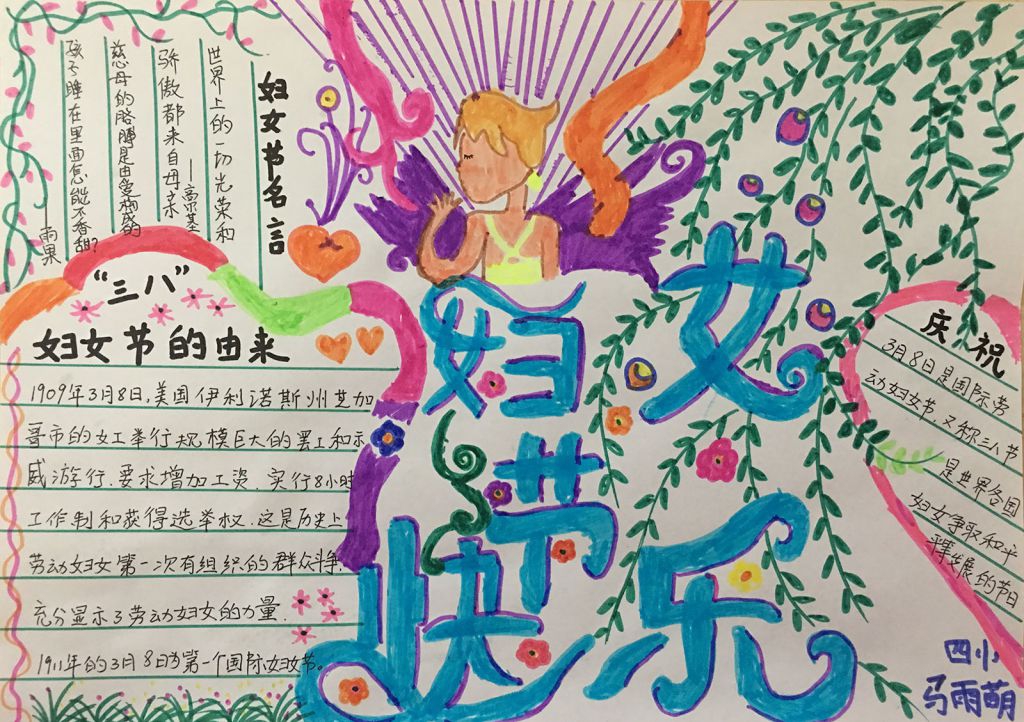 妇女节名言
世界上的一切光荣和
骄傲都来自母亲
——高尔基
慈母的胳膊是由爱构成的
孩子睡在里面怎能不香甜？
——雨果
“三八”
妇女节的由来
1909年3月8日,美国伊利诺斯州芝加
哥市的女工举行规模巨大的罢工和示
威游行.要求增加工资 实行8小时
工作制和获得选举权.这是历史上
劳动妇女第一次有组织的群众斗争.
充分显示了劳动妇女的力量.
1911年的3月8日为第一个国际妇女节。
妇女
节
快乐
庆祝
3月8日是国际劳
动妇女节,又称三八节
是世界各国
妇女争取和平
发展的节日
四小
马雨萌